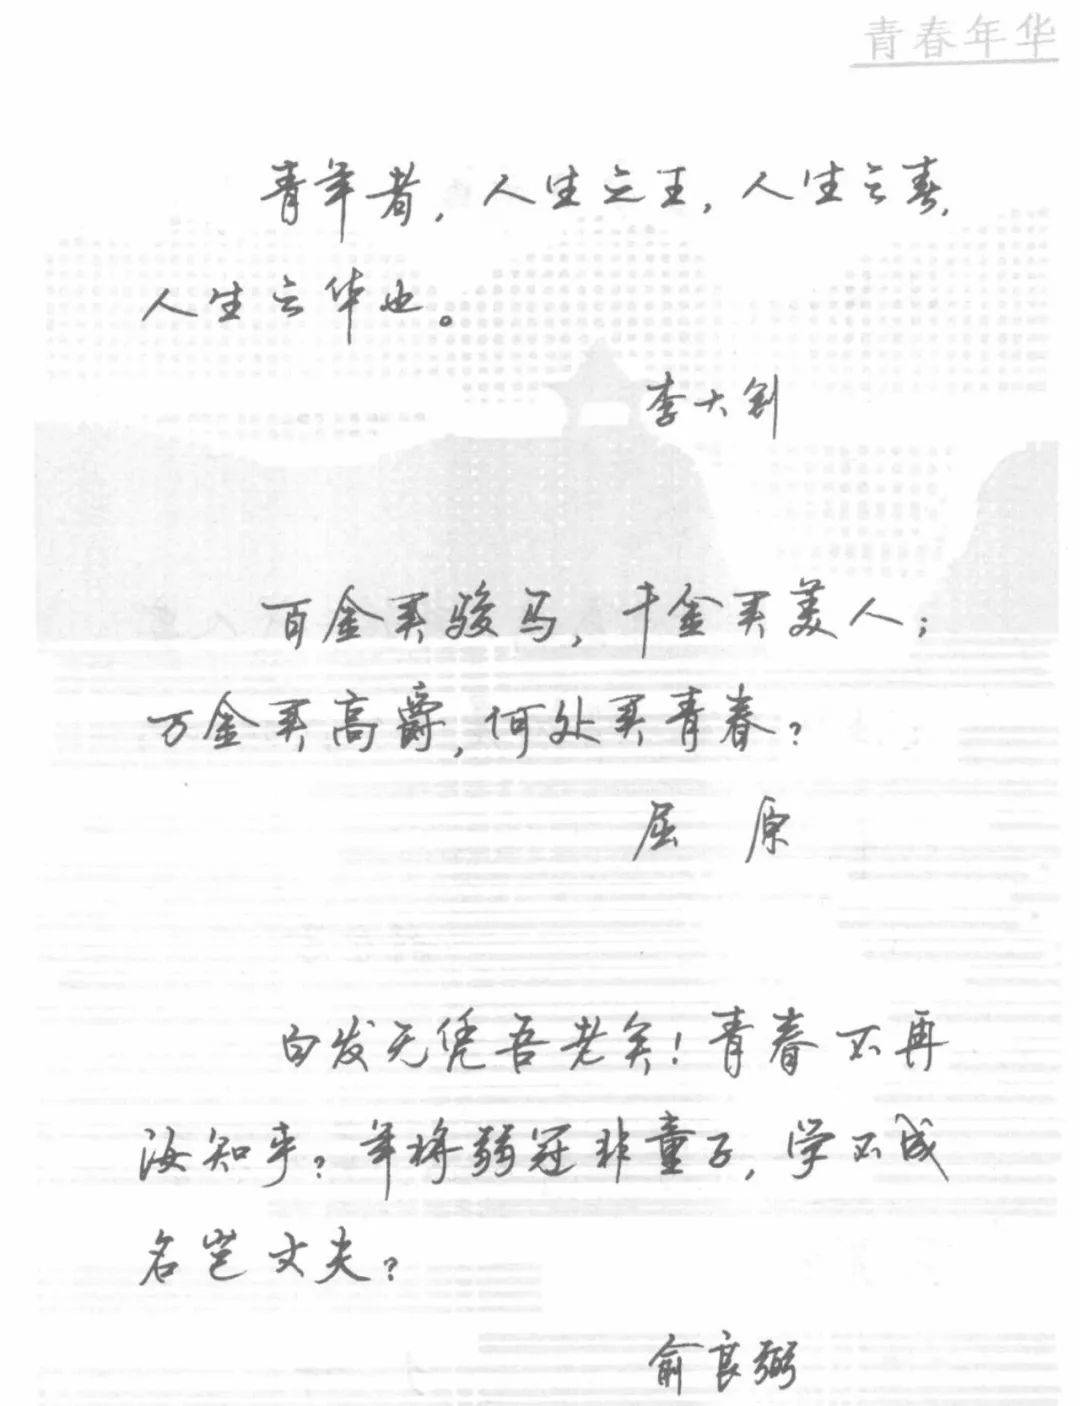 青春年华
青年者，人生之王，人生之春，
人生之华也。
李大钊
百金买骏马，千金买美人；
万金买高爵，何处买青春？
屈 原
白发无凭吾老矣！青春不再
汝知乎？年将弱冠非童子，学不成
名岂丈夫？
俞良弼